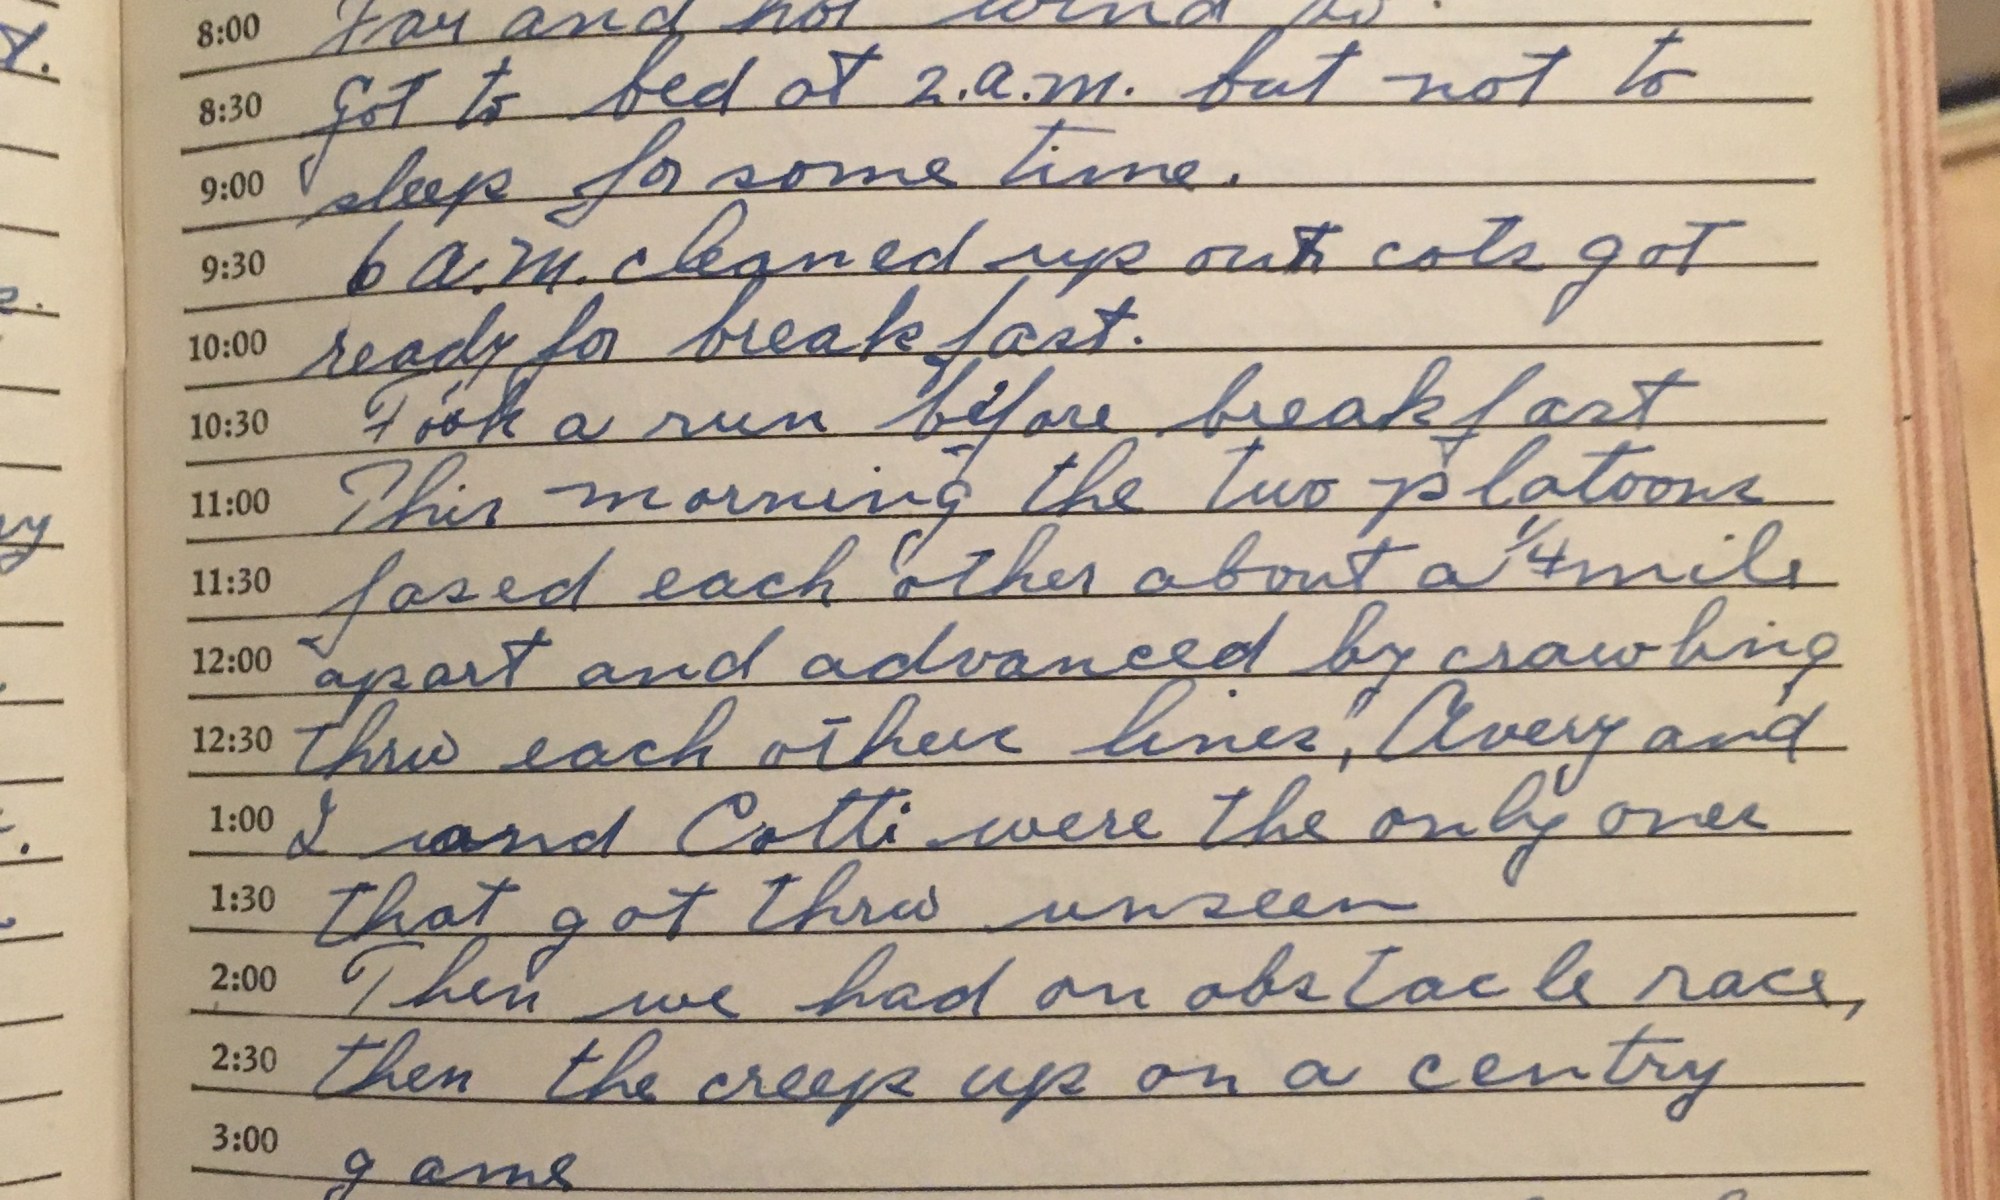 8:00 Fair and hot wind so.
8:30 Got to bed at 2.a.m. but not to
9:00 sleep for some time.
9:30 6 a.m. cleaned up our cots got
10:00 ready for breakfast.
10:30 Took a run before breakfast
11:00 This morning the two platoons
11:30 fased each other about a 1/4 mile
12:00 apart and advanced by crawling
12:30 thru each other lines, Avery and
1:00 I and Cotti were the only ones
1:30 that got thru unseen
2:00 Then we had on obstacle race,
2:30 then the creep up on a centry
3:00 game